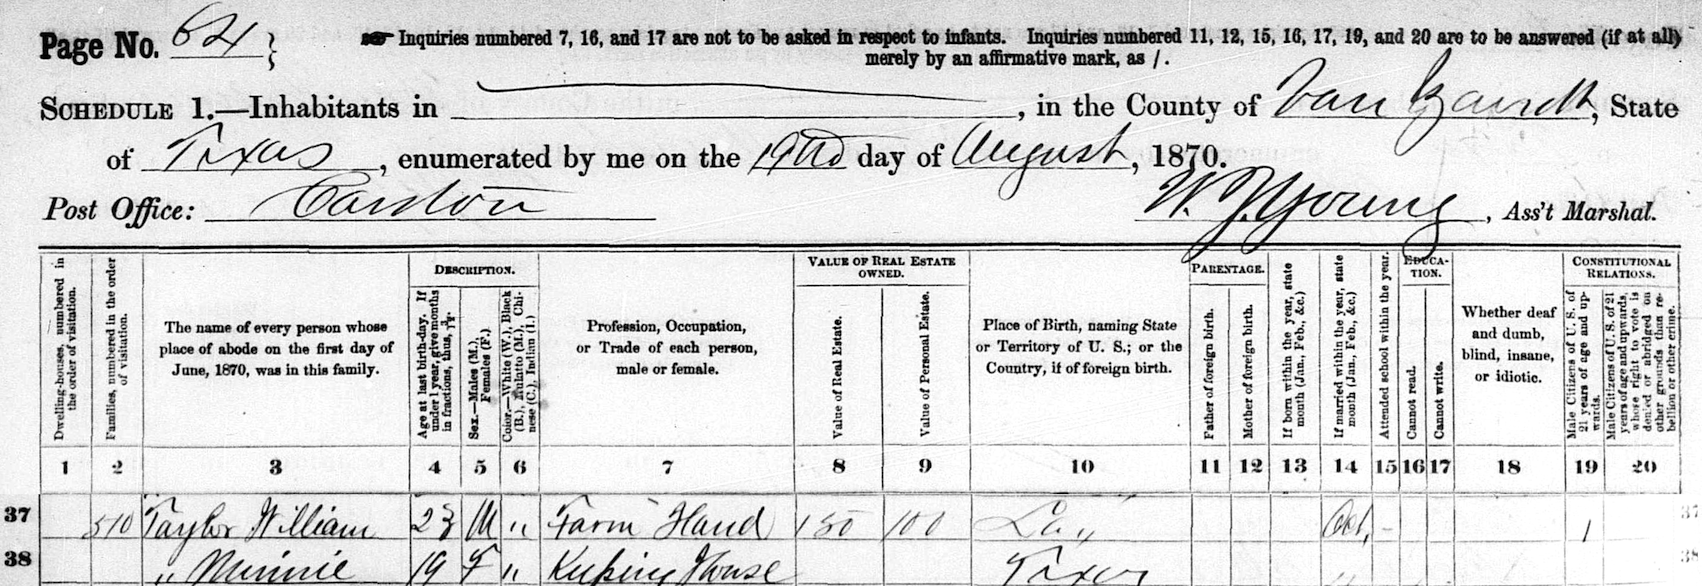 Page No. 64 } Inquiries numbered 7, 16, and 17 are not to be asked in respect to infants. Inquiries numbered 11, 12, 15, 16, 17, 19, and 20 are to be answered (if at all)
merely by an affirmative mark, as /.
SCHEDULE 1.—Inhabitants in , in the County of Van Zandt, State
of Texas, enumerated by me on the day of August, 1870.
Post Office: Canton W. J. Young, Ass't Marshal.
Dwelling-houses, numbered in the order of visitation.
Families, numbered in the order of visitation.
The name of every person whose
place of abode on the first day of
June, 1870, was in this family.
DESCRIPTION.
Age at last birth-day. If under 1 year, give months in fractions, thus, 3/12.
Sex.—Males (M.), Females (F.)
Color.—White (W.), Black (B.), Mulatto (M.), Chinese (C.), Indian (I.)
Profession, Occupation,
or Trade of each person,
male or female.
VALUE OF REAL ESTATE
OWNED.
Value of Real Estate.
Value of Personal Estate.
Place of Birth, naming State
or Territory of U. S.; or the
Country, if of foreign birth.
PARENTAGE.
Father of foreign birth.
Mother of foreign birth.
If born within the year, state month (Jan., Feb., &c.)
If married within the year, state month (Jan., Feb., &c.)
Attended school within the year.
EDUCA-
TION.
Cannot read.
Cannot write.
Whether deaf
and dumb,
blind, insane,
or idiotic.
CONSTITUTIONAL
RELATIONS.
Male Citizens of U. S. of 21 years of age and upwards.
Male Citizens of U. S. of 21 years of age and upwards, whose right to vote is denied or abridged on other grounds than rebellion or other crime.
1 2 3 4 5 6 7 8 9 10 11 12 13 14 15 16 17 18 19 20
37 510 Taylor William 23 M " Farm Hand 150 100 La " Oct, - 1 37
38 " Minnie 19 F " Keeping House Texas " 38